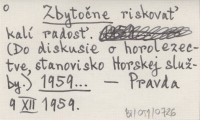 Zbytočne riskovať
kalí radosť.
(Do diskusie o horolezec-
tve, stanovisko Horskej služ-
by.) 1959... — Pravda
9 XII 1959.